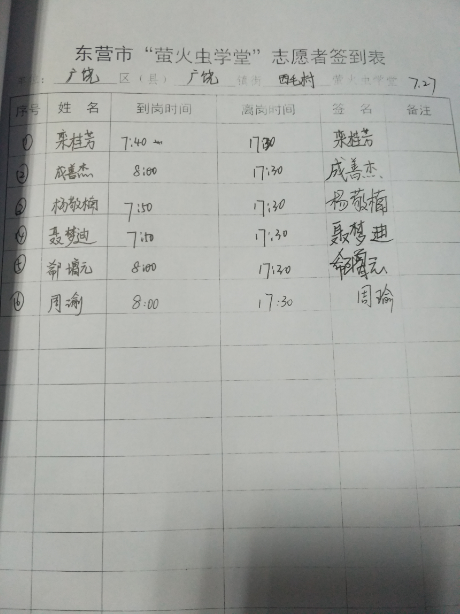 东营市“萤火虫学堂”志愿者签到表
广饶 区（县） 广饶 镇街 西毛村 萤火虫学堂 7.27
序号 姓 名 到岗时间 离岗时间 签 名 备注
① 栾桂芳 7:40 17:30 栾桂芳
② 成善杰 8:00 17:30 成善杰
③ 杨敬楠 7:50 17:30 杨敬楠
④ 聂梦迪 7:50 17:30 聂梦迪
⑤ 8:00 17:30
⑥ 周瑜 8:00 17:30 周瑜